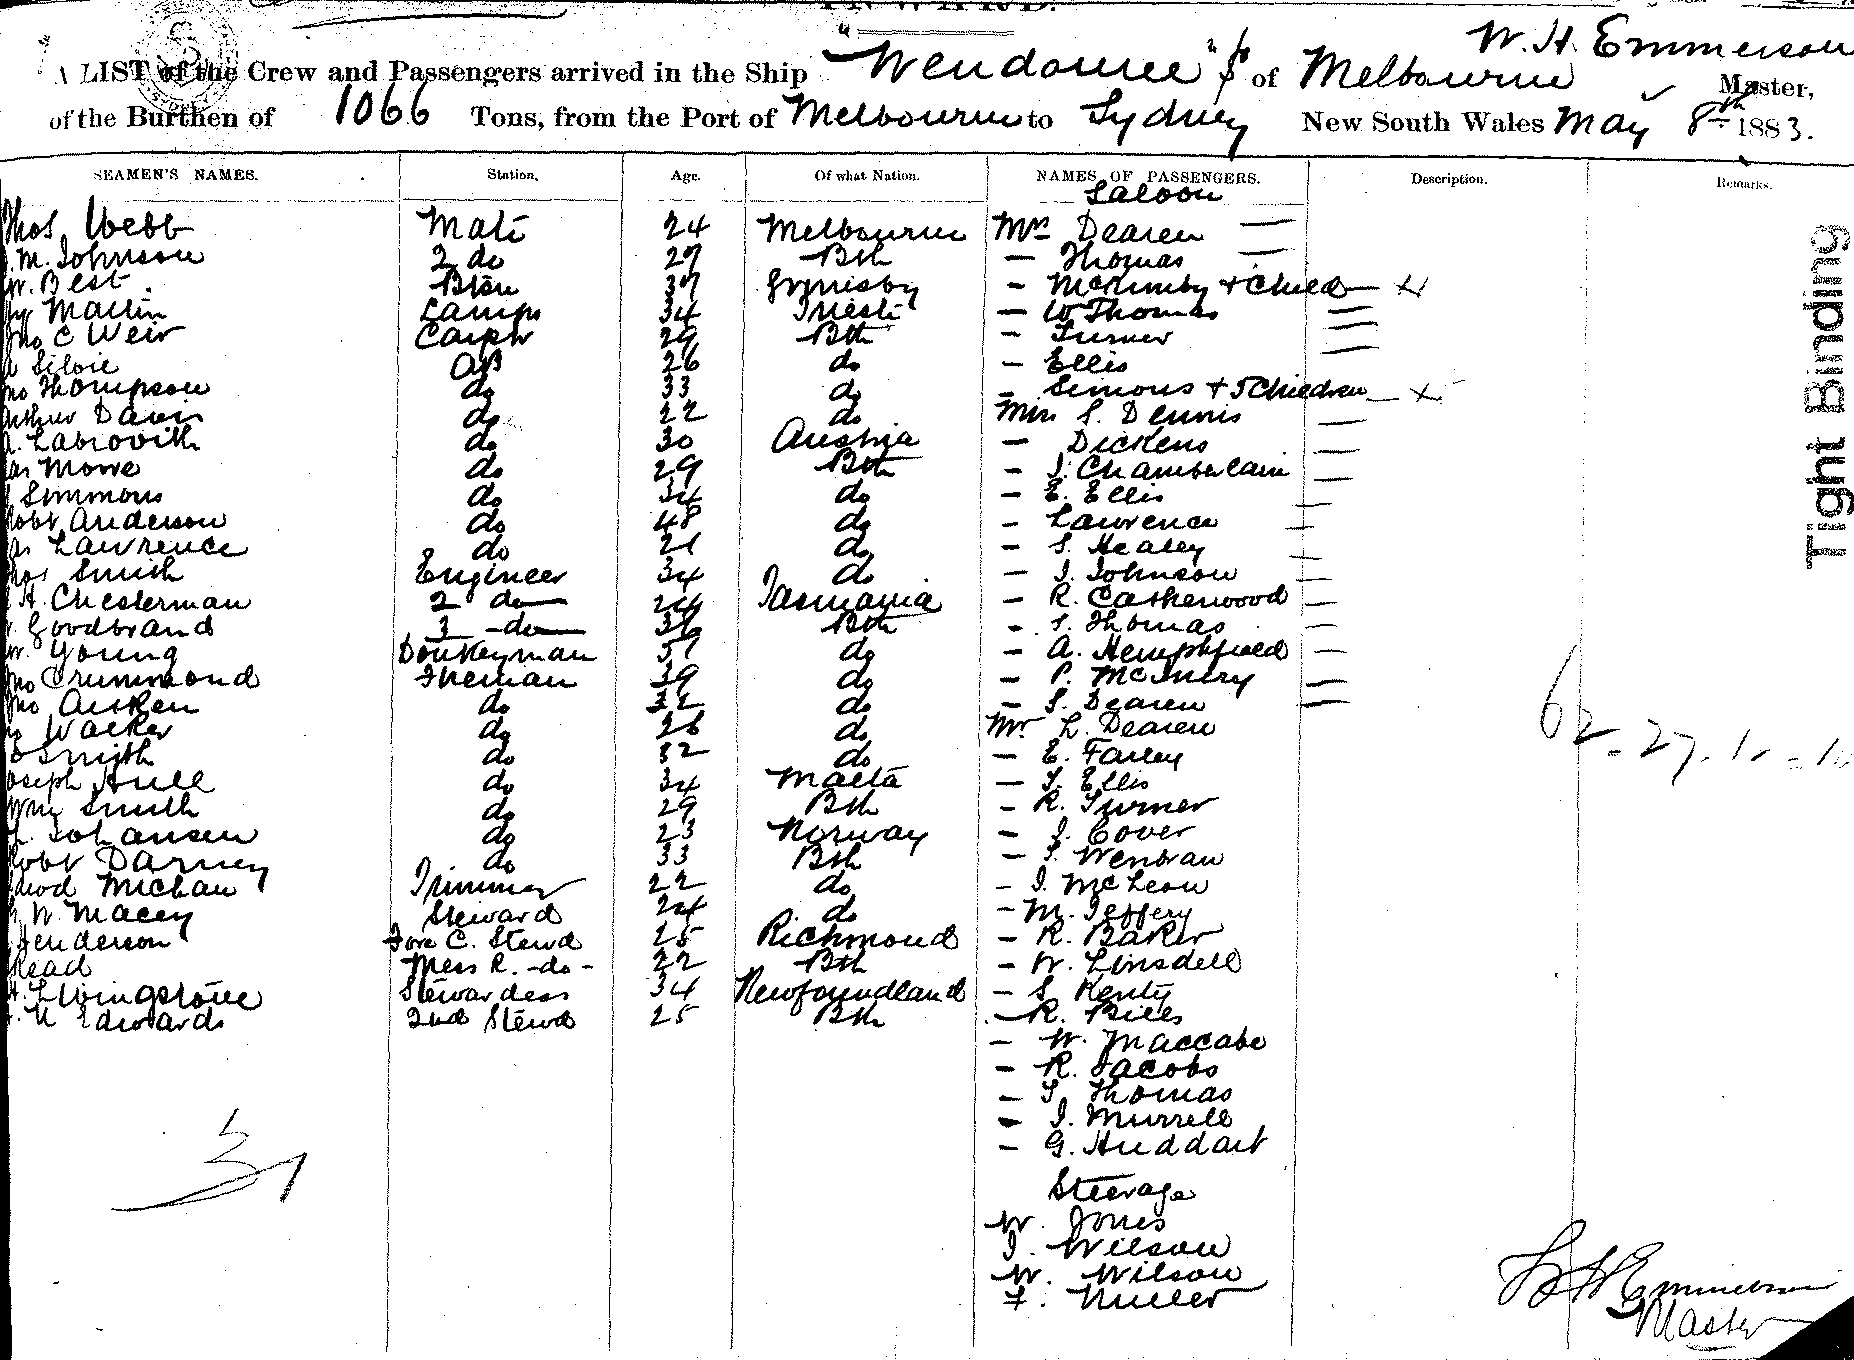 W. H. Emmerson
A LIST of the Crew and Passengers arrived in the Ship "Wendouree" S of Melbourne Master,
of the Burthen of 1066 Tons, from the Port of Melbourne to Sydney New South Wales May 8th 1883.
SEAMEN'S NAMES. Station. Age. Of what Nation. NAMES OF PASSENGERS. Description. Remarks.
Saloon
Thos Webb Mate 24 Melbourne Mrs Dearen —
M. Johnson 2 do 29 Bth — Thomas —
W. Best Bsn 37 Grimsby — & Child — x
Martin Lamps 34 Trieste — W Thomas —
Jno C Weir Carptr 29 Bth — Turner —
Silvie AB 26 do — Ellis —
Jno Thompson do 33 do — Simons & 5 Children — x
Arthur Davis do 22 do Miss S. Dennis —
Labrovith do 30 Austria — Dickens —
Jas Mowe do 29 Bth — J. Chamberlain —
Simmons do 34 do — E. Ellis —
Robt Anderson do 48 do — Lawrence —
Jas Lawrence do 21 do — S. Healey —
Thos Smith Engineer 34 do — J. Johnson —
H. Chesterman 2 do 24 Tasmania — R. Catherwood —
Goodbrand 3 do Bth — S. Thomas —
W. Young Donkeyman 57 do — A. Hemphfield —
Jno Crummond Fireman 39 do — P. McInery —
Jno Aitken do 32 do — S. Dearen —
Walker do 26 do Mr L. Dearen
Smith do 32 do — E. Farley
Joseph Hull do 34 Malta — T. Ellis
Wm Smith do 29 Bth — R. Turner
Johansen do 23 Norway — J. Cover
Robt Darney do 33 Bth — Wenbran
Edwd Michau Trimmer 22 do — J. McLeon
W. Macey Steward 24 do — M. Jeffery
Henderson Fore C. Stewd 25 Richmond — R. Baker
Read Mess R. -do- 22 Bth — W. Linsdell
Livingstone Stewardess 34 Newfoundland — S Kenty
Edwards 2nd Stewd 25 Bth — R. Biles
— W. Maccabe
— R. Jacobs
— T Thomas
— J. Murrell
— G. Huddart
31
Steerage
W. Jones
J. Wilson
W. Wilson
F. Muller
W H Emmerson
Master
Tight Binding